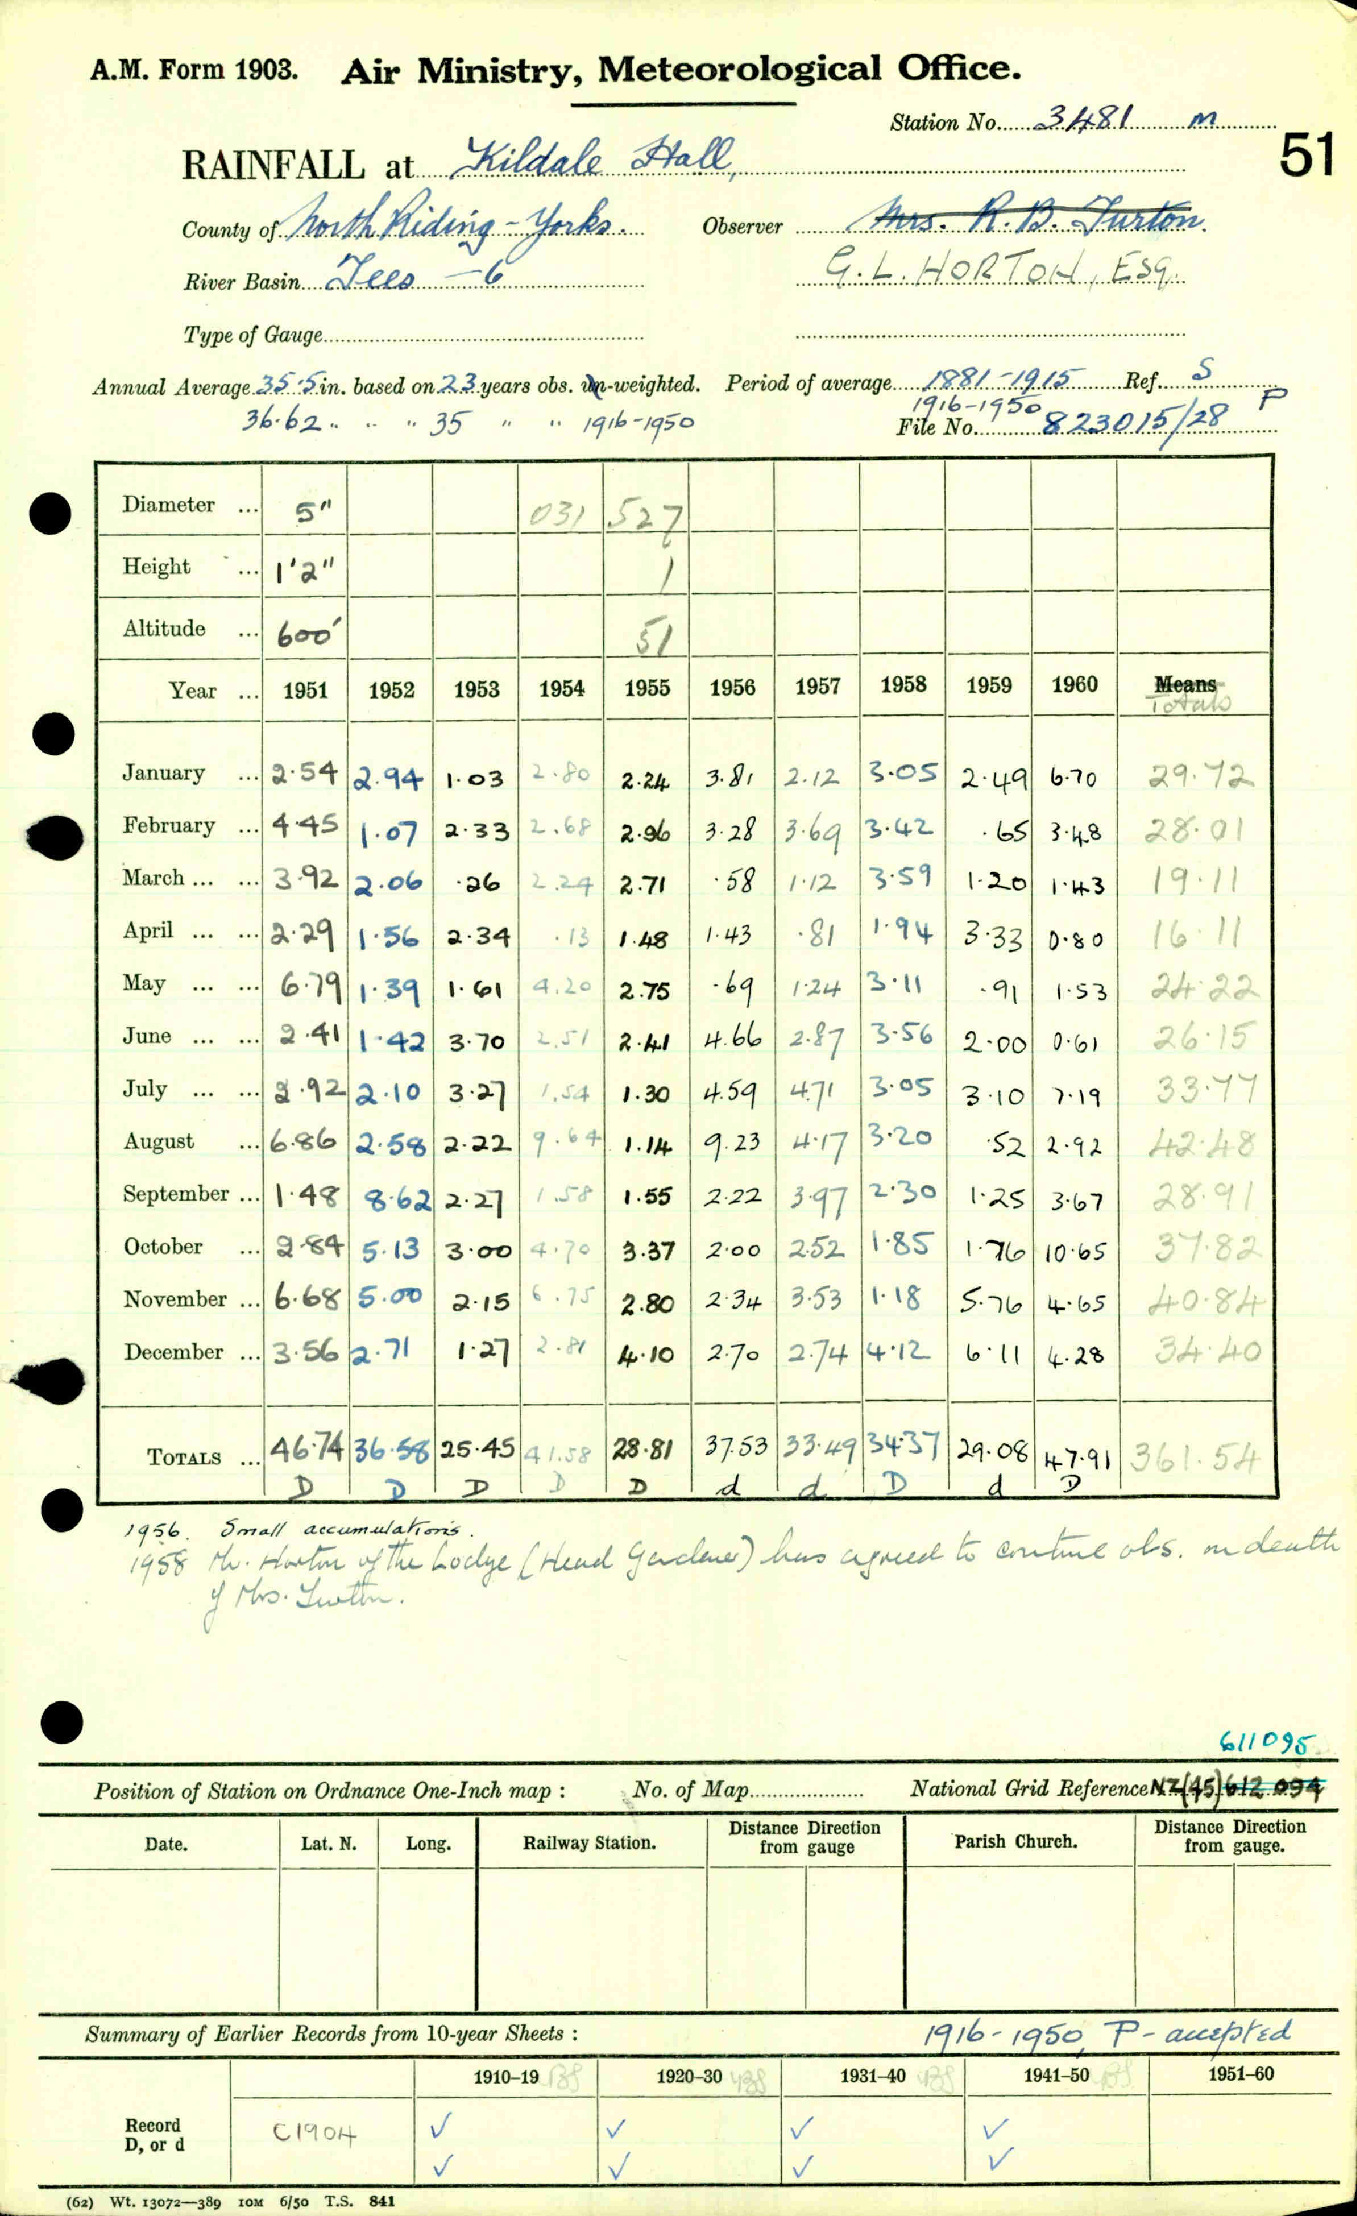 A.M. Form 1903. Air Ministry, Meteorological Office.
Station No. 3481 m
51
RAINFALL at Kildale Hall,
County of North Riding - Yorks. Observer Mrs. R. B. Turton.
River Basin Tees - 6 G. L. HORTON, ESQ.
Type of Gauge
Annual Average 35.5 in. based on 23 years obs. un-weighted. Period of average 1881-1915 Ref. S
36.62 " " " 35 " " 1916-1950 1916-1950 P
File No. 823015/28
Diameter ... 5" 031 527
Height ... 1'2" 1
Altitude ... 600' 51
Year ... 1951 1952 1953 1954 1955 1956 1957 1958 1959 1960 Means
Totals
January ... 2.54 2.94 1.03 2.80 2.24 3.81 2.12 3.05 2.49 6.70 29.72
February ... 4.45 1.07 2.33 2.68 2.96 3.28 3.69 3.42 .65 3.48 28.01
March ... ... 3.92 2.06 .26 2.24 2.71 .58 1.12 3.59 1.20 1.43 19.11
April ... ... 2.29 1.56 2.34 .13 1.48 1.43 .81 1.94 3.33 0.80 16.11
May ... ... 6.79 1.39 1.61 4.20 2.75 .69 1.24 3.11 .91 1.53 24.22
June ... ... 2.41 1.42 3.70 2.51 2.41 4.66 2.87 3.56 2.00 0.61 26.15
July ... ... 2.92 2.10 3.27 1.54 1.30 4.59 4.71 3.05 3.10 7.19 33.77
August ... 6.86 2.58 2.22 9.64 1.14 9.23 4.17 3.20 .52 2.92 42.48
September ... 1.48 8.62 2.27 1.58 1.55 2.22 3.97 2.30 1.25 3.67 28.91
October ... 2.84 5.13 3.00 4.70 3.37 2.00 2.52 1.85 1.76 10.65 37.82
November ... 6.68 5.00 2.15 6.75 2.80 2.34 3.53 1.18 5.76 4.65 40.84
December ... 3.56 2.71 1.27 2.81 4.10 2.70 2.74 4.12 6.11 4.28 34.40
TOTALS ... 46.74 36.58 25.45 41.58 28.81 37.53 33.49 34.37 29.08 47.91 361.54
D D D D D d d D d D
1956. Small accumulations.
1958 Mr. Horton of the Lodge (Head Gardener) has agreed to continue obs. on death
of Mrs. Turton.
611095
Position of Station on Ordnance One-Inch map : No. of Map National Grid Reference NZ(45) 612 094
Date. Lat. N. Long. Railway Station. Distance from Direction gauge Parish Church. Distance from Direction gauge.
Summary of Earlier Records from 10-year Sheets : 1916-1950, P - accepted
1910-19 1920-30 1931-40 1941-50 1951-60
Record
D, or d C1904 ✓ ✓ ✓ ✓
✓ ✓ ✓ ✓
(62) Wt. 13072—389 10M 6/50 T.S. 841